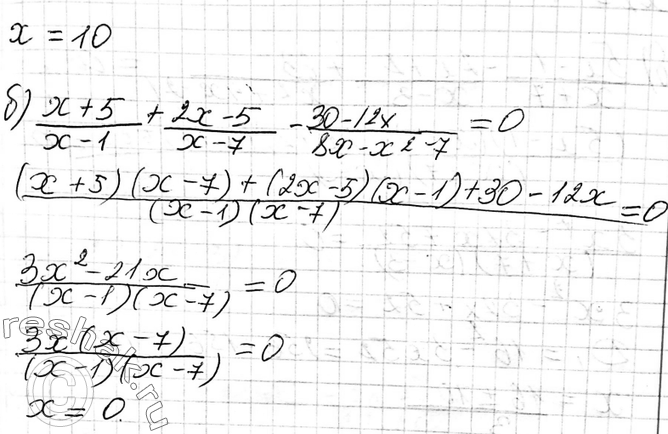 x = 10
б) (x + 5)/(x - 1) + (2x - 5)/(x - 7) - (30 - 12x)/(8x - x² - 7) = 0
((x + 5)(x - 7) + (2x - 5)(x - 1) + 30 - 12x)/((x - 1)(x - 7)) = 0
(3x² - 21x)/((x - 1)(x - 7)) = 0
(3x (x - 7))/((x - 1)(x - 7)) = 0
x = 0.
reshak.ru